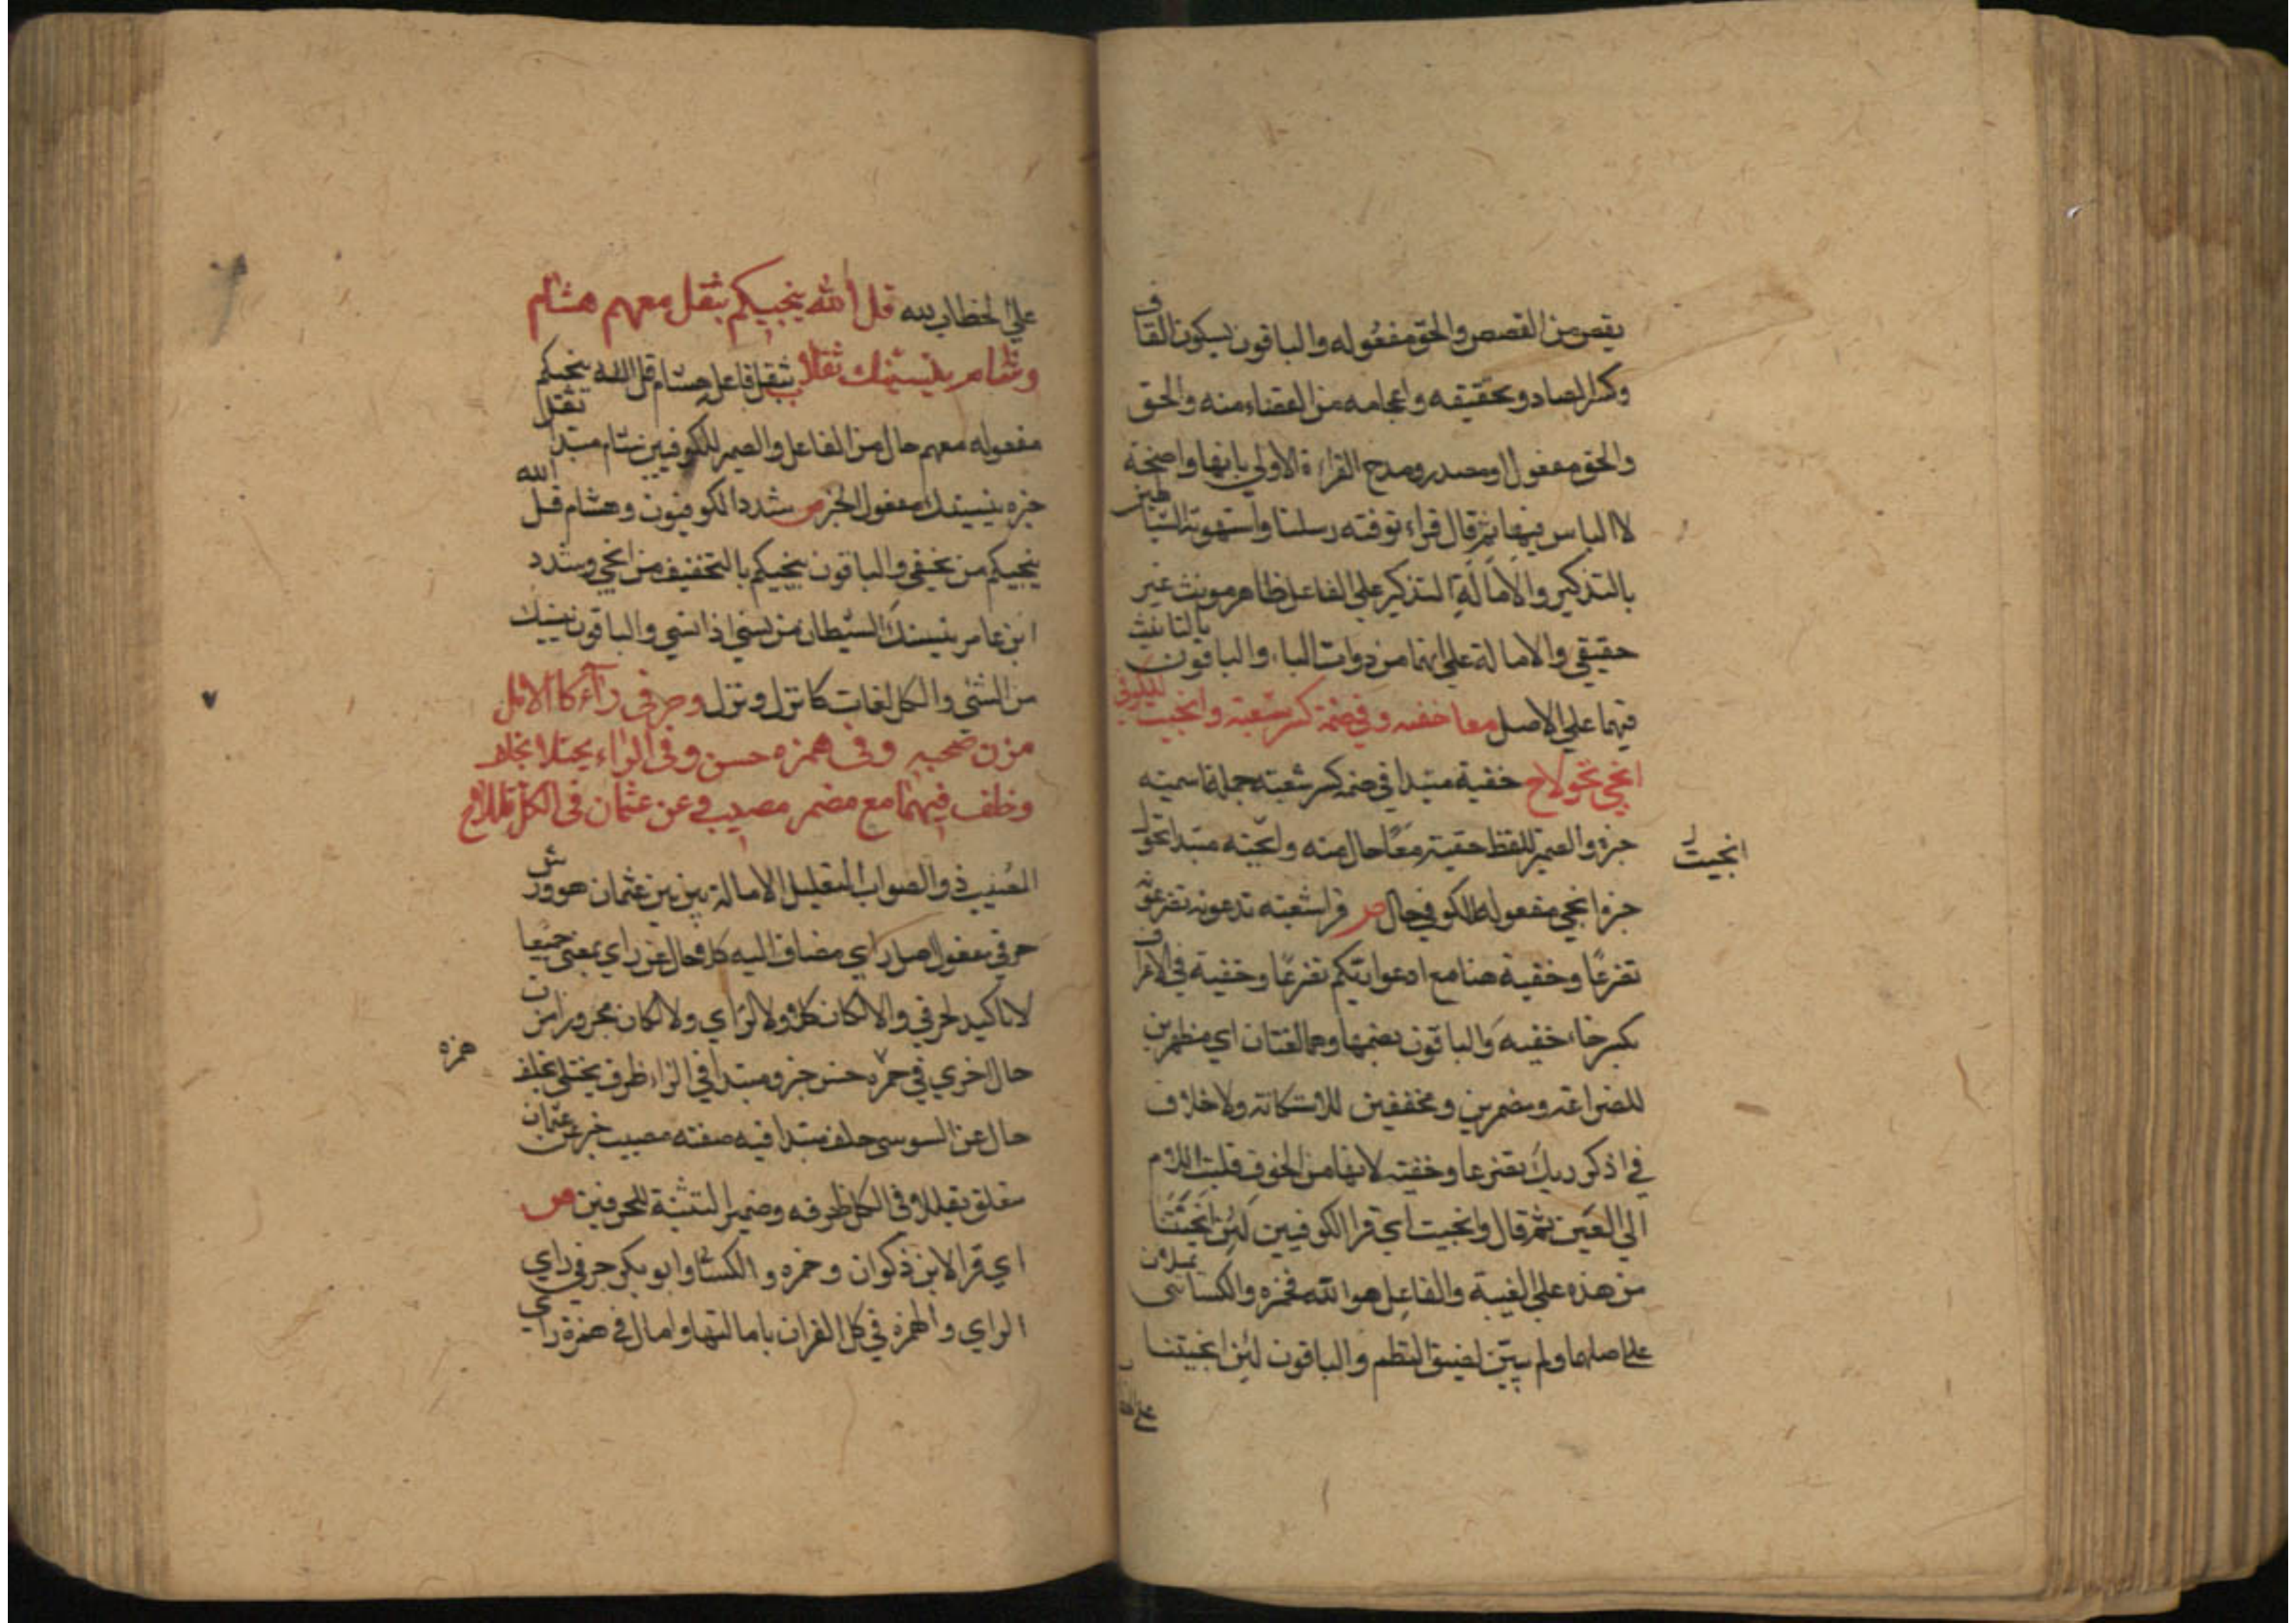 يقص من القصص والحق مفعوله والباقون بسكون القاف
وكسر الصاد وتحقيقه واعجامه من القضاء منه والحق
والحق مفعول او مصدر ومدح القراءة الاولي بانها واضحة
لا الباس فيها ثم قال قراء توفته رسلنا واستهوته الشيا
بالتذكير والامالة التذكير علي الفاعل ظاهر مونث غير
حقيقي والامالة علي انهما من ذوات الياء والباقون بالتانيث
فيهما علي الاصل معا خفيه في ضمه كسر شعبة وانجيت للكوفي
انجي تحولا ح خفية مبتدا في ضمه كسر شعبته جملة اسميته
خبره والضمير للفظ خفية معا حال منه وانجيته مبتدا تحول
انجيت
خبره انجي مفعوله للكوفي حال ص قرا شعبته تدعونه تضرعا
تضرعا وخفية هنا مع ادعوا ربكم تضرعا وخفية في الاعراف
بكسر خاء خفيه والباقون بضمها وهما لغتان اي مظهرين
للضراعة ومضمرين ومخففين للاستكانة ولا خلاف
في اذكر ربك تضرعا وخفيته لانها من الخوف قلبت اللام
الي العين ثم قال وانجيت اي قرا الكوفيين لئن انجيتنا
من هذه علي الغيبة والفاعل هو الله فحمزه والكسائي يميلان
علي اصلهما ولم يبين لضيق النظم والباقون لئن انجيتنا
علي الخطاب لله قل الله ينجيكم بثقل معهم هشام
وشام ينسينك ثقلا ب يثقل فاعله هشام قل الله ينجيكم
مفعوله معهم حال من الفاعل والضمير للكوفيين شام مبتدا ثقل
خبره ينسينك مفعول الخبر ص شدد الكوفيون وهشام قل الله
ينجيكم من نجي والباقون ينجيكم بالتخفيف من انجي وشدد
ابن عامر ينسينك الشيطان من نسي اذا نسي والباقون ينسينك
من انسي والكل لغات كانزل ونزل وحرفي راءي كلا امل
مزن صحبه وفي همزه حسن وفي الراء يجتلا بخلف
وخلف فيهما مع مضمر مصيب وعن عثمان في الكل قللا ح
المصيب ذو الصواب التقليل الامالة بين بين عثمان هو ورش
حرفي مفعول امل راي مضاف اليه كلا حال عن راي بمعني جميعا
لا تاكيد لحرفي والا لكان كلي ولا لراي ولا لكان مجرورا مزن
حال اخري في همزه حسن خبر ومبتدا في الراء ظرف يجتلي بخلف
همزه
حال عن السوسي خلف مبتدا فيه صفته مصيب خبر عن عثمان
متعلق بقللا في الكل ظرفه وضمير التثنية للحرفين ص
اي قرا لابن ذكوان وحمزه والكسائي وابو بكر حرفي راي
الراي والهمزه في كل القران بامالتها وامال في همزة راي